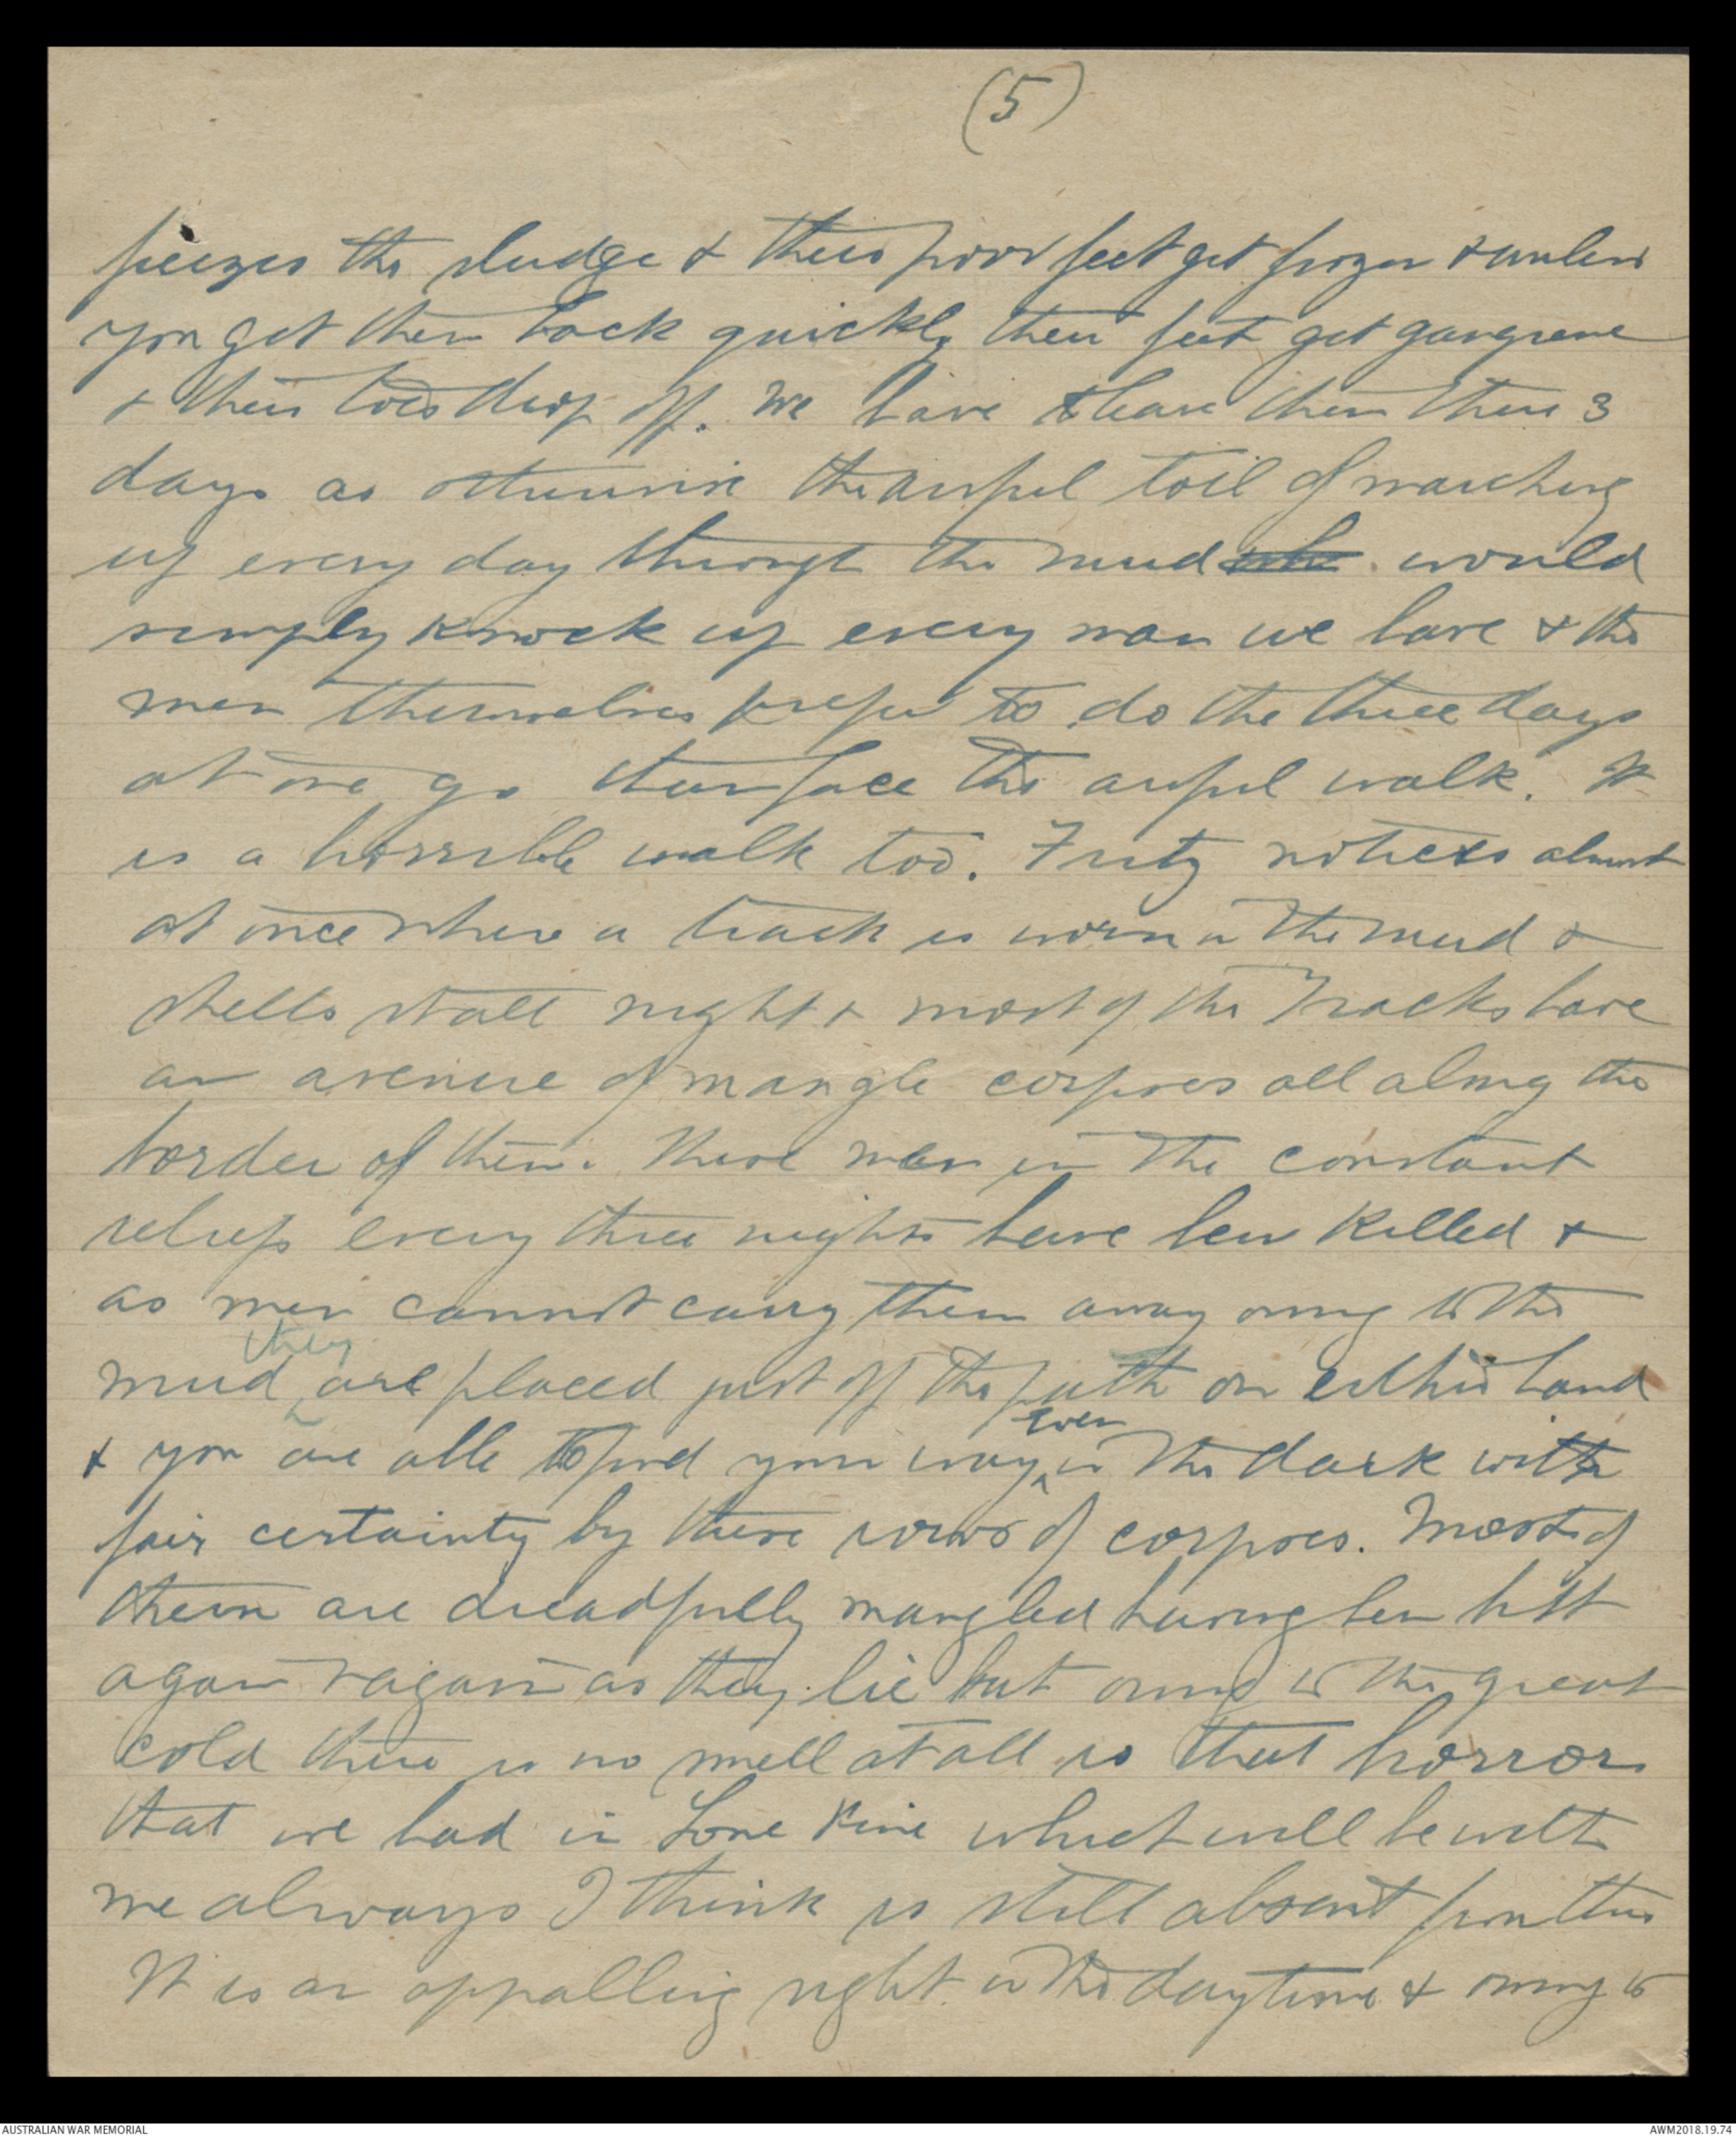 (5)
freezes the sludge & their poor feet get frozen & unless
you get them back quickly their feet get gangrene
& their toes drop off. We have to leave them there 3
days as otherwise the awful toil of marching
up every day through the mud would
simply knock up every man we have & the
men themselves prefer to do the three days
at one go than face the awful walk. It
is a horrible walk too. Fritz notices almost
at once where a track is worn in the mud &
shells it all night & most of the tracks have
an avenue of mangle corpses all along the
border of them. These men in the constant
reliefs every three nights have been killed &
as men cannot carry them away owing to the
mud they are placed just off the path on either hand
& you are able to find your way even in the dark with
fair certainty by these rows of corpses. Most of
them are dreadfully mangled having been hit
again & again as they lie but owing to the great
cold there is no smell at all so that horror
that we had in Lone Pine which will be with
me always I think is still absent from this
It is an appalling sight in the daytime & owing to
AUSTRALIAN WAR MEMORIAL
AWM2018.19.74